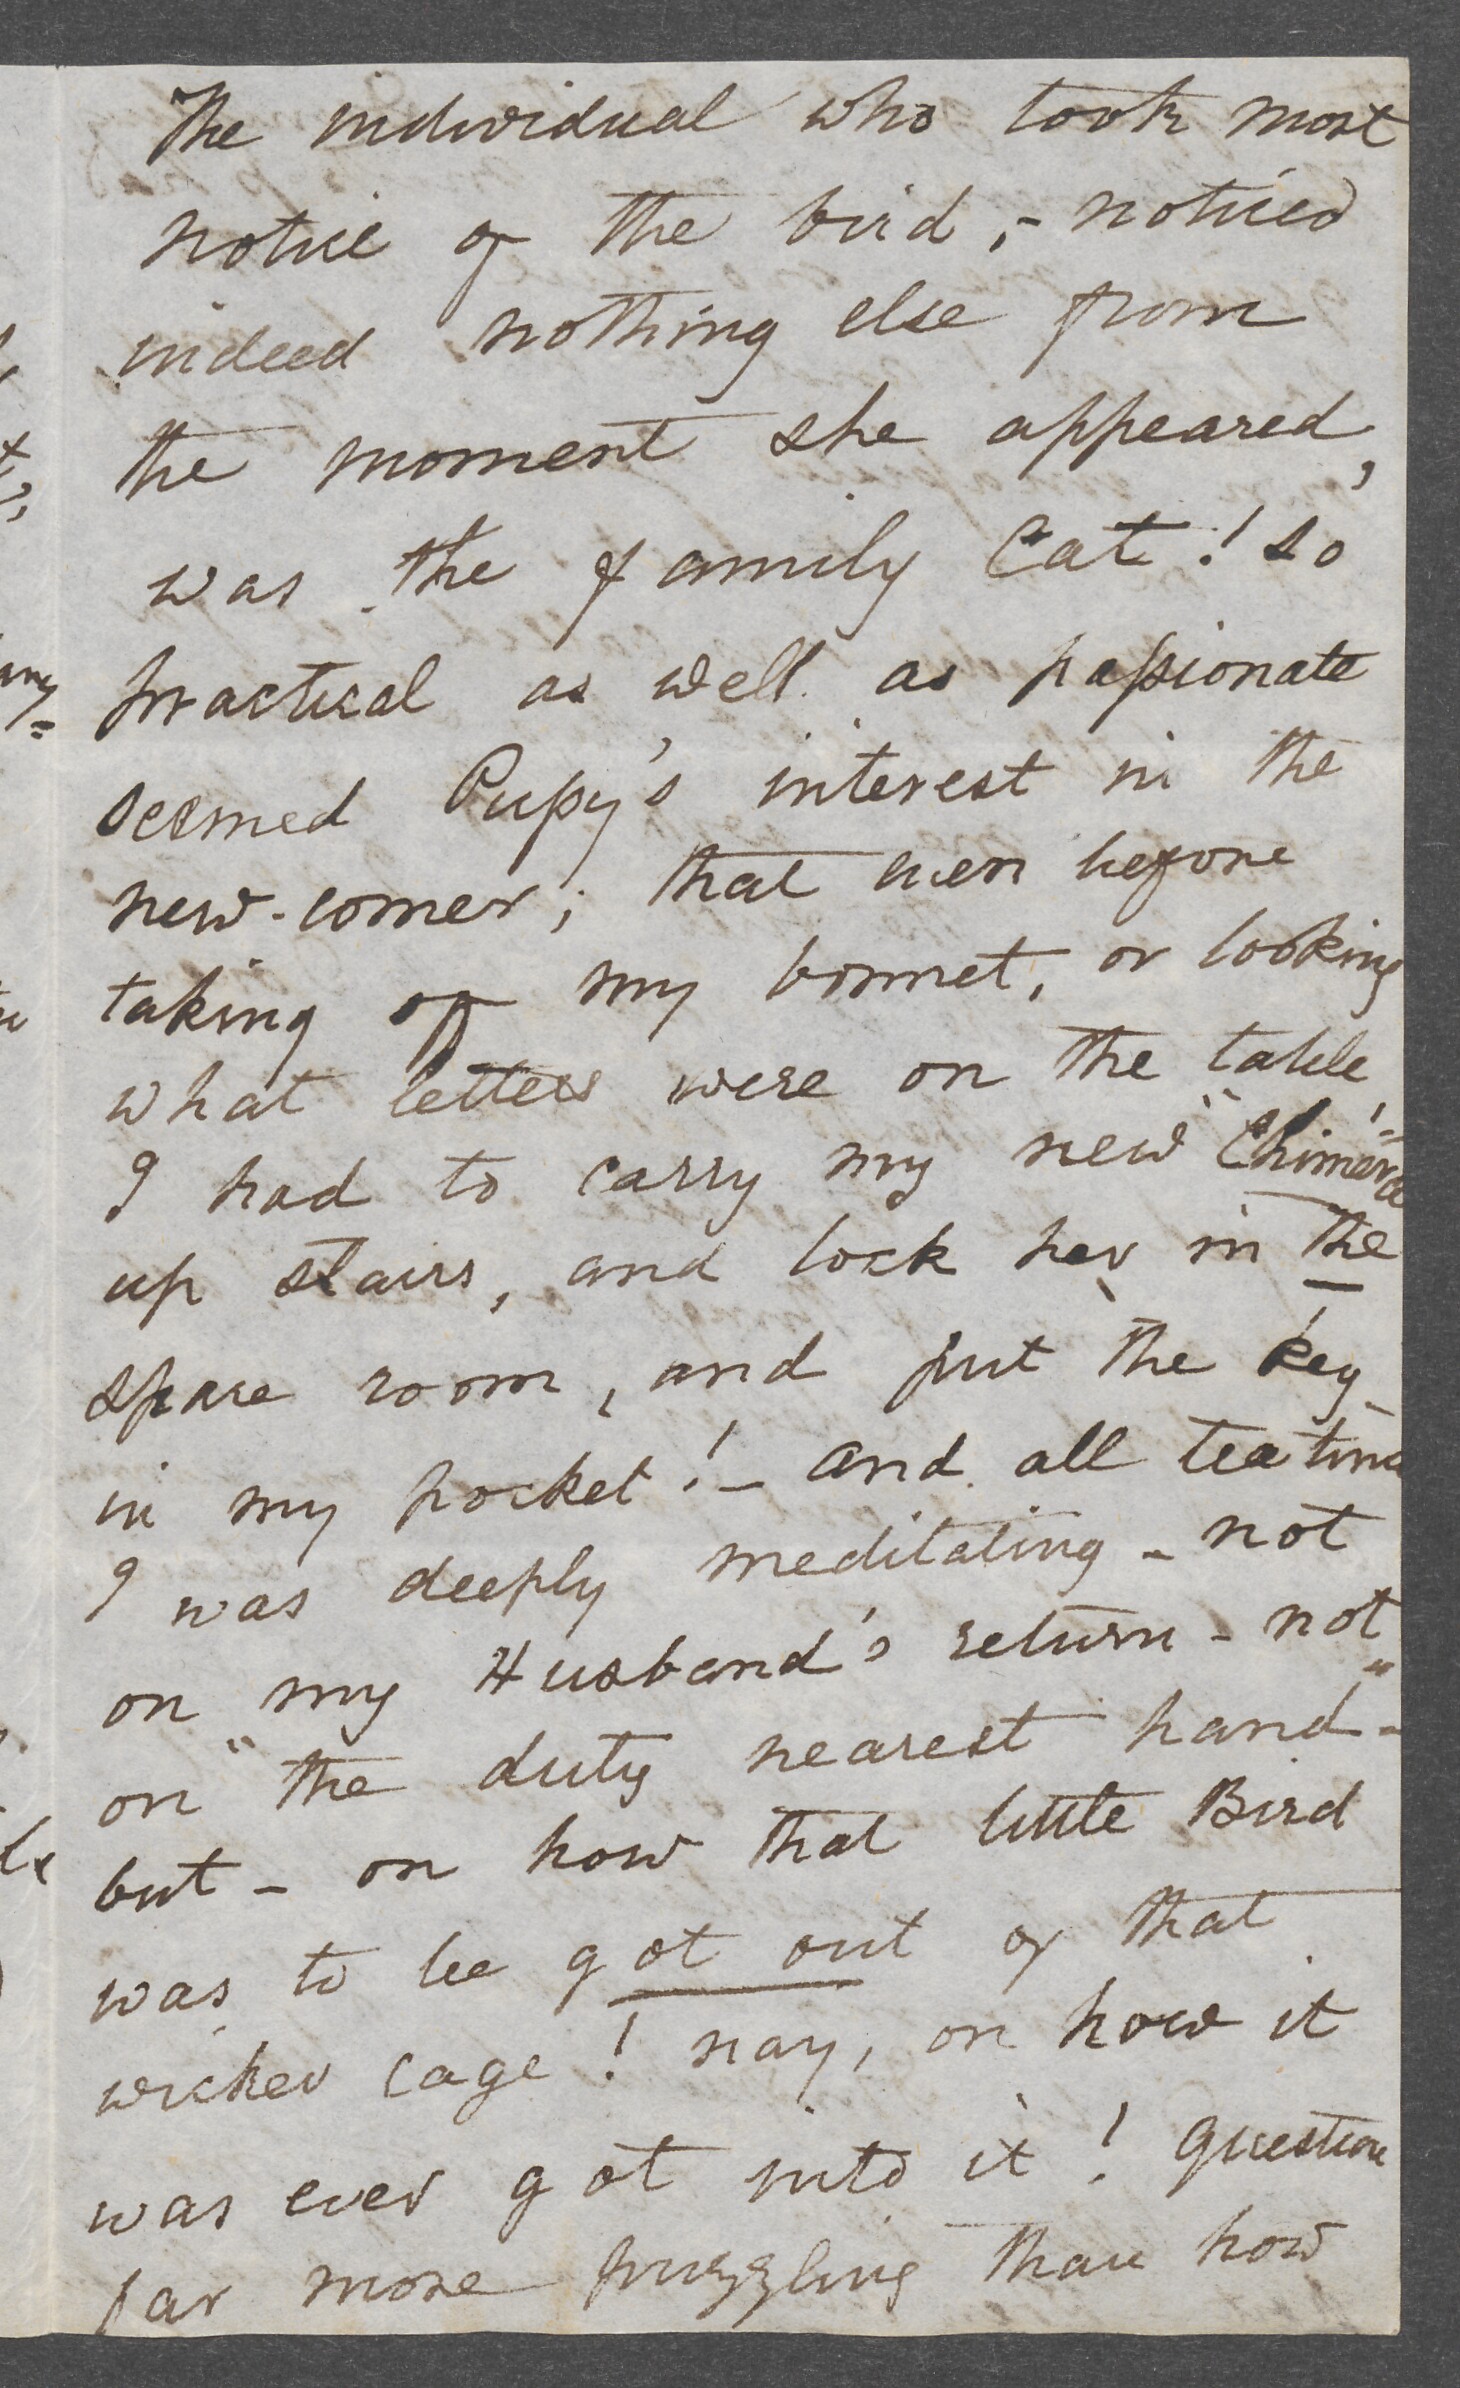 The individual who took most
notice of the bird, - noticed
indeed nothing else from
the moment she appeared,
was the family Cat! so
practical as well as passionate
seemed Pussy's interest in the
new-comer; that even before
taking off my bonnet, or looking
what letters were on the table
I had to carry my new "Chimera"
up stairs, and lock her in the
spare room, and put the key
in my pocket! - and all tea time
I was deeply meditating - not
on my Husband's return - not
on "the duty nearest hand" -
but - on how that little Bird
was to be got out of that
wicker cage! nay, on how it
was ever got into it! Question
far more puzzling than how